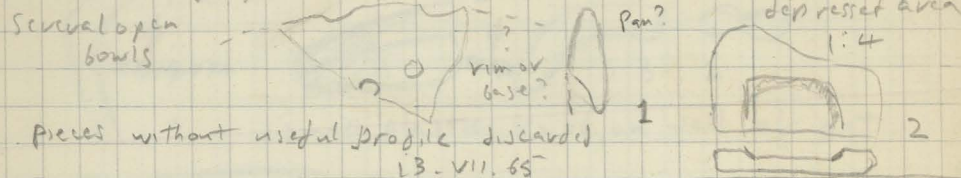 Several open
bowls
?
rim or
base?
Pan?
1
depressed area
1:4
2
pieces without useful profile discarded
13.VII.65